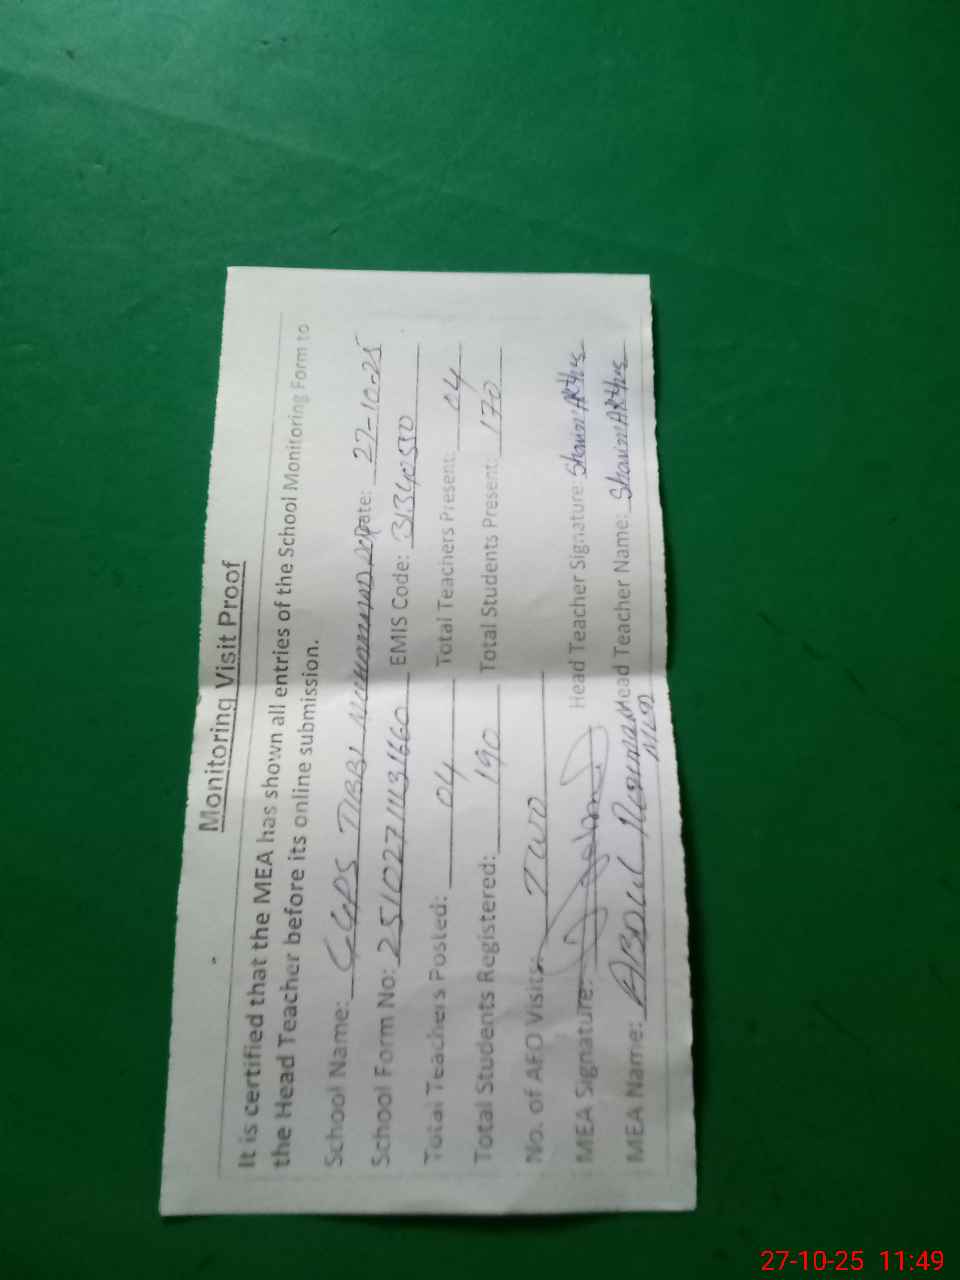 Monitoring Visit Proof
It is certified that the MEA has shown all entries of the School Monitoring Form to
the Head Teacher before its online submission.
School Name: GGPS TIBBI MUHAMMAD Date: 27-10-25
School Form No: EMIS Code: 31340530
Total Teachers Posted: 04 Total Teachers Present: 04
Total Students Registered: 190 Total Students Present: 170
No. of AFO Visits: TWO
MEA Signature: Head Teacher Signature:
MEA Name: ABDUL Head Teacher Name:
27-10-25 11:49